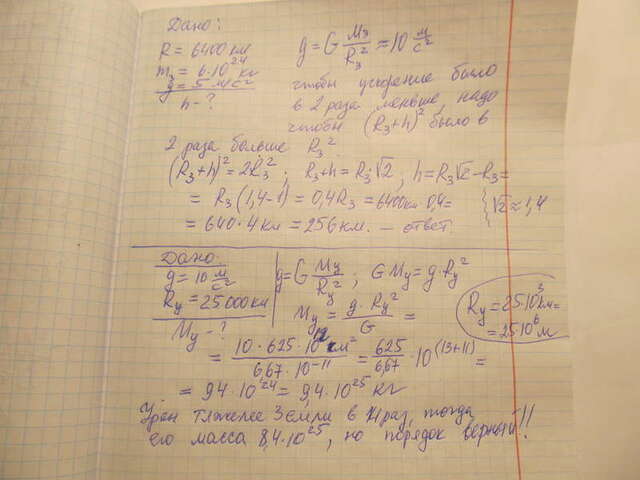 Дано:
R = 6400 км
m₃ = 6·10²⁴ кг
g = 5 м/с²
h - ?
g = G M₃/R₃² ≈ 10 м/с²
чтобы ускорение было
в 2 раза меньше, надо
чтобы (R₃+h)² было в
2 раза больше R₃²
(R₃+h)² = 2R₃²; R₃+h = R₃√2; h = R₃√2 - R₃ =
= R₃(1,4-1) = 0,4R₃ = 6400км 0,4 =
{√2 ≈ 1,4
= 640·4 км = 256 км. — ответ.
Дано:
g = 10 м/с²
Rу = 25000 км
Mу - ?
g = G Mу/Rу²; G Mу = g·Rу²
Mу = g·Rу²/G =
Rу = 25·10³ км =
= 25·10⁶ м
= 10·625·10¹² м²/6,67·10⁻¹¹ = 625/6,67·10⁽¹³⁺¹¹⁾ =
= 94·10²⁴ = 9,4·10²⁵ кг
Уран тяжелее Земли в 14 раз, тогда
его масса 8,4·10²⁵, но порядок верный!!